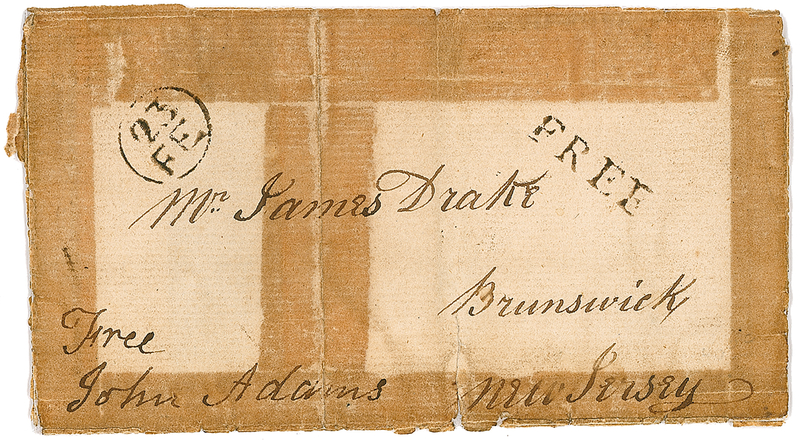 23
FE
FREE
Mr. James Drake
Brunswick
Free
John Adams
New Jersey